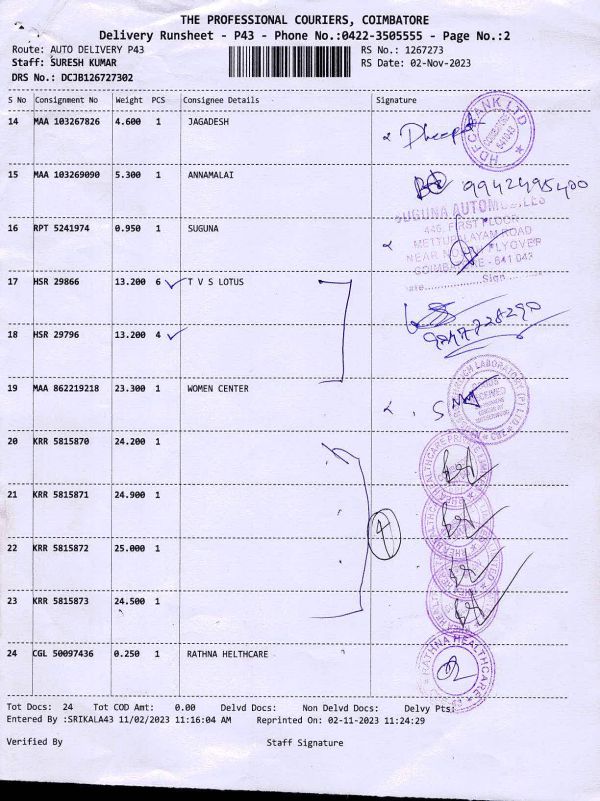 THE PROFESSIONAL COURIERS, COIMBATORE
Delivery Runsheet - P43 - Phone No.:0422-3505555 - Page No.:2
Route: AUTO DELIVERY P43 RS No.: 1267273
Staff: SURESH KUMAR RS Date: 02-Nov-2023
DRS No.: DCJB126727302
S No Consignment No Weight PCS Consignee Details Signature
14 MAA 103267826 4.600 1 JAGADESH
HDFC BANK LTD
641043
15 MAA 103269090 5.300 1 ANNAMALAI
9942495400
SUGUNA AUTOMOBILES
446, FIRST FLOOR
16 RPT 5241974 0.950 1 SUGUNA
METTUPALAYAM ROAD
NEAR FLYOVER
COIMBATORE - 641 043
Sign
17 HSR 29866 13.200 6 T V S LOTUS
18 HSR 29796 13.200 4
19 MAA 862219218 23.300 1 WOMEN CENTER
RECEIVED
20 KRR 5815870 24.200 1
21 KRR 5815871 24.900 1
4
22 KRR 5815872 25.000 1
23 KRR 5815873 24.500 1
24 CGL 50097436 0.250 1 RATHNA HELTHCARE
RATHNA HEALTHCARE
Tot Docs: 24 Tot COD Amt: 0.00 Delvd Docs: Non Delvd Docs: Delvy Pts:
Entered By :SRIKALA43 11/02/2023 11:16:04 AM Reprinted On: 02-11-2023 11:24:29
Verified By Staff Signature